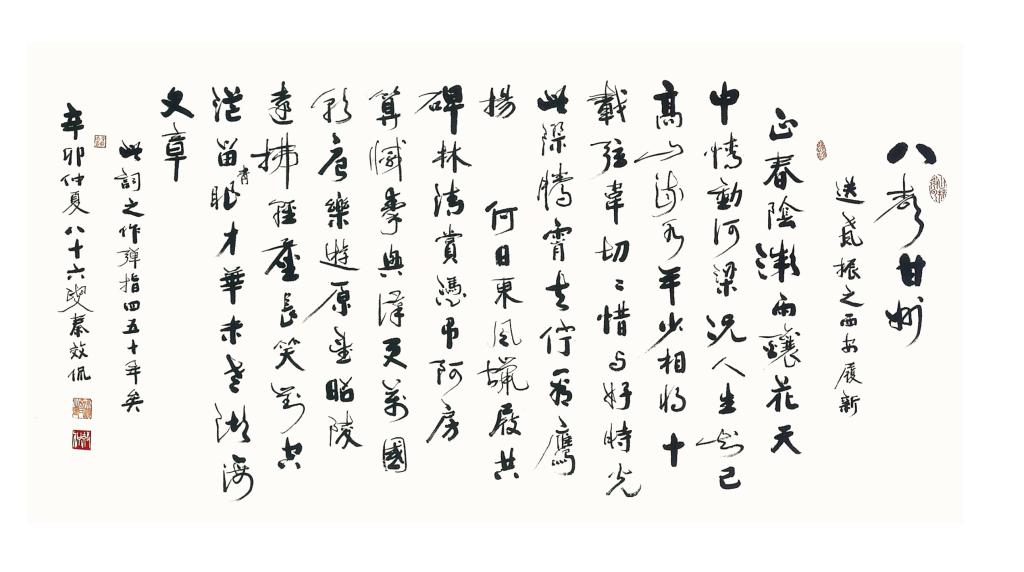 八聲甘州
送振之西安履新
正春陰雨釀花天
中情動河梁況人生知己
高山流水年少相將十
載弦韋切切惜與好時光
此際騰霄去佇看鷹
揚 何日東風蠟屐共
碑林清賞憑弔阿房
算秦與漢萬國
朝唐樂遊原望昭陵
遠拂輕塵長笑對空
茫留青眼才華未老湖海
文章
此詞之作彈指四五十年矣
辛卯仲夏八十六叟秦效侃